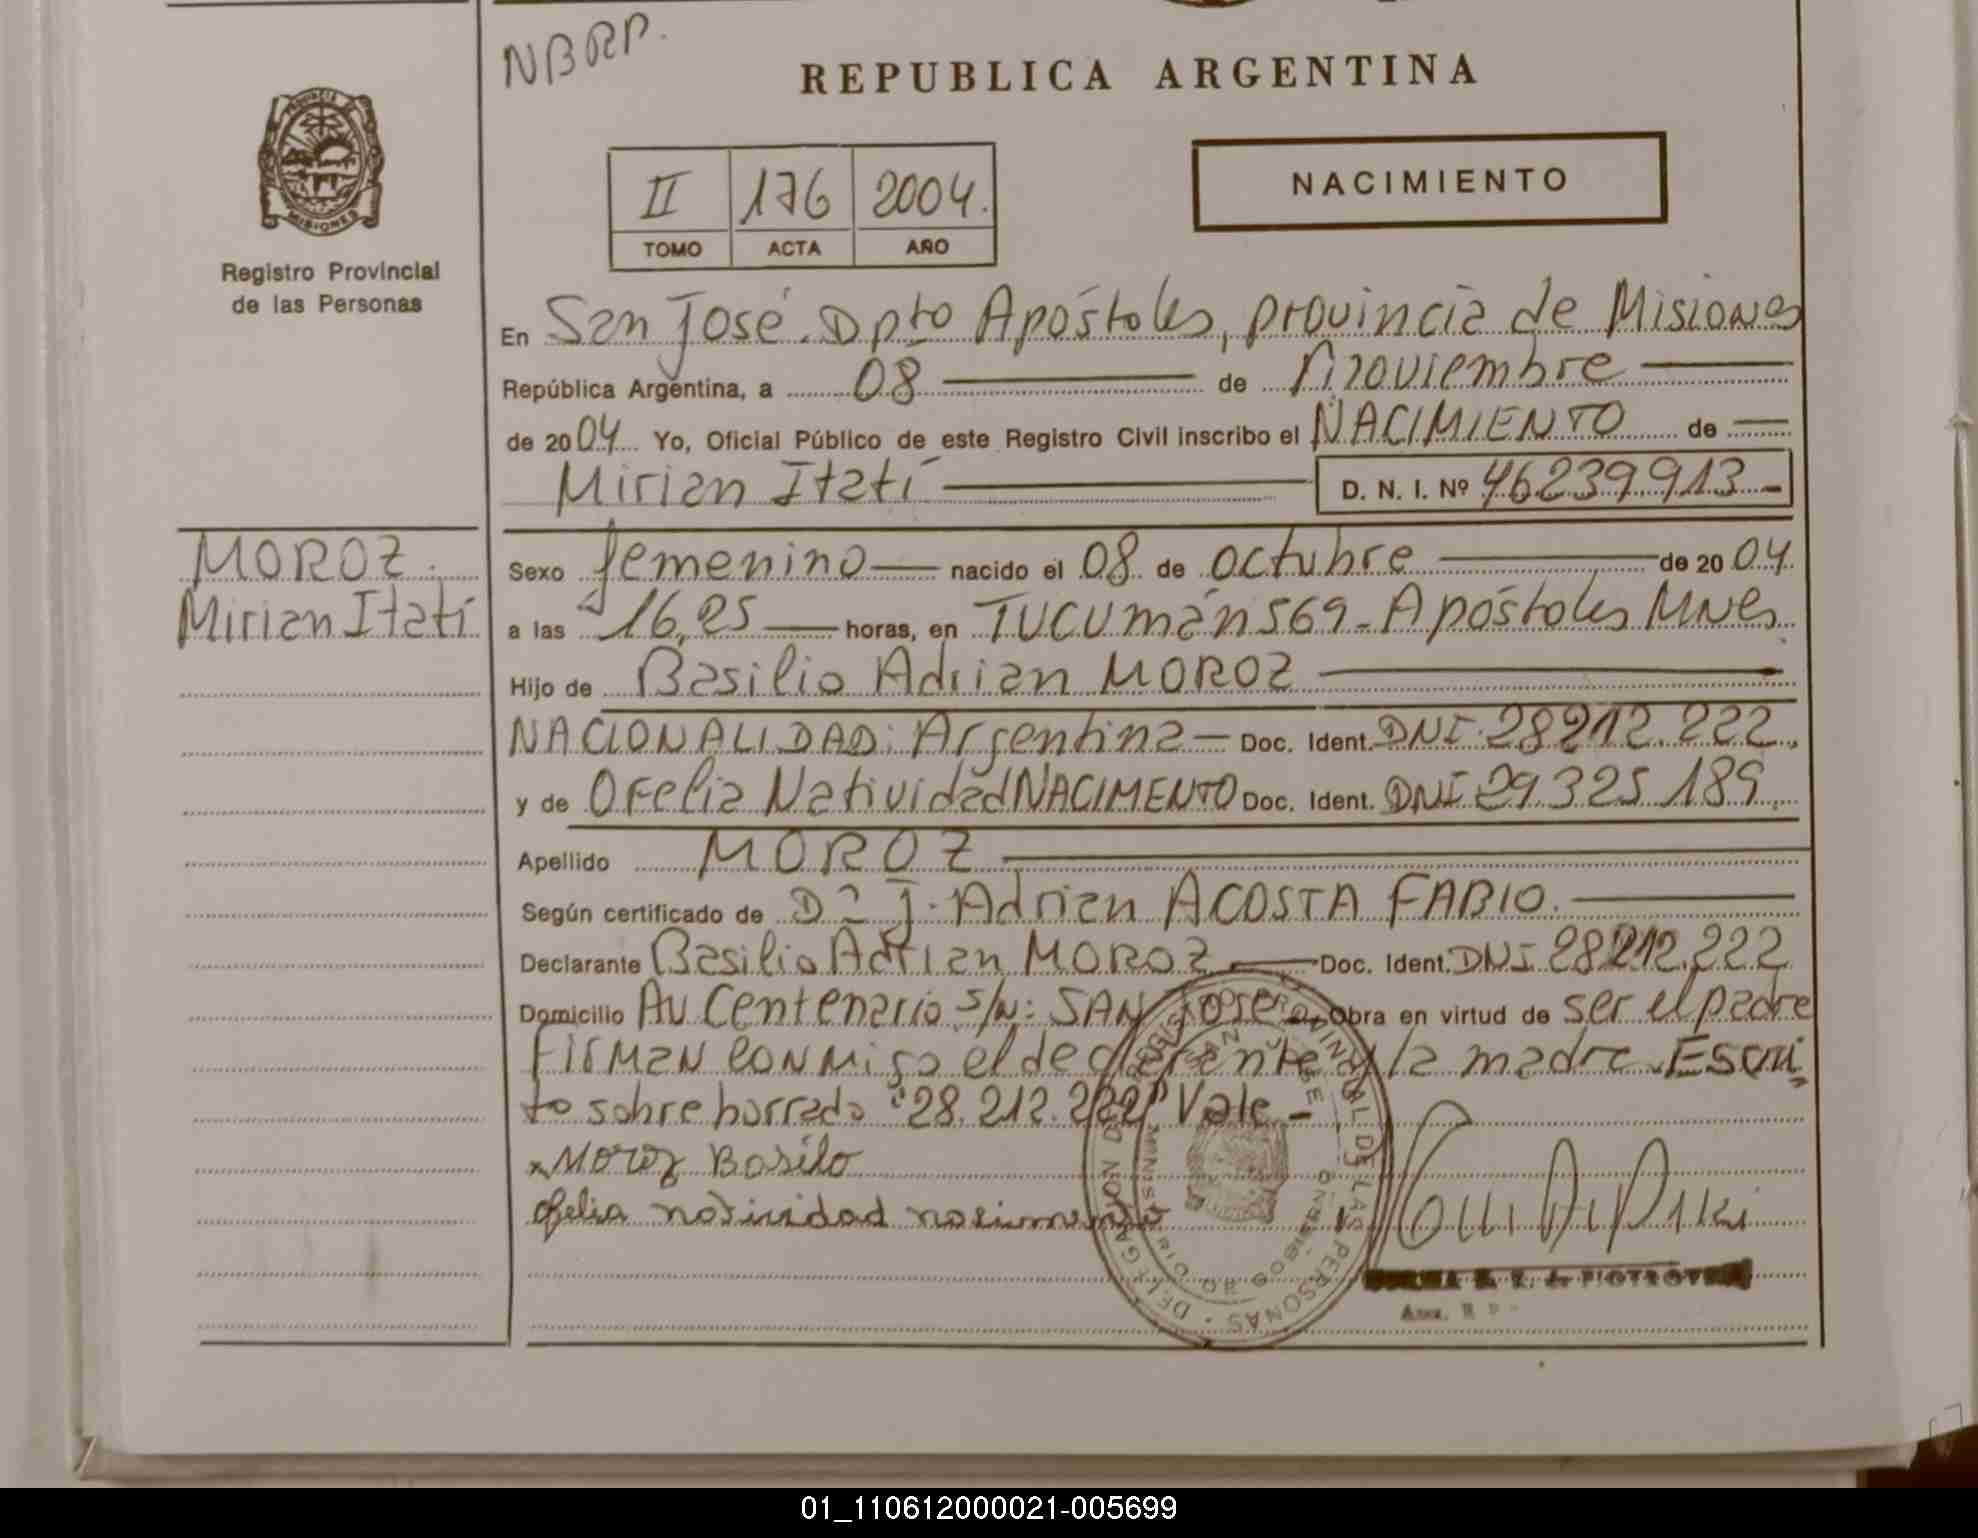 NBRP.
REPUBLICA ARGENTINA
NACIMIENTO
II 176 2004.
TOMO ACTA AÑO
MISIONES
Registro Provincial
de las Personas
En San José. Dpto Apóstoles, provincia de Misiones
República Argentina, a 08 de Noviembre
de 2004 Yo, Oficial Público de este Registro Civil inscribo el NACIMIENTO de
Mirian Itatí D. N. I. Nº 46239913-
MOROZ.
Mirian Itatí
Sexo femenino nacido el 08 de octubre de 2004
a las 16,25 horas, en TUCUmán 569- Apóstoles Mnes
Hijo de Basilio Adrian MOROZ
NACIONALIDAD: Argentina - Doc. Ident. DNI 28212.222,
y de Ofelia Natividad NACIMENTO Doc. Ident. DNI 29.325.189
Apellido MOROZ
Según certificado de J. Adrian ACOSTA FABIO.
Declarante Basilio Adrian MOROZ Doc. Ident. DNI 28212.222
Domicilio AV Centenario s/n: SAN José Obra en virtud de ser el padre
Firman conmigo el declarante y la madre. Escri
to sobre borrado "28.212.222" Vale-
x Moroz Basilo
Ofelia natividad nasimento
REGISTRO PROVINCIAL DE LAS PERSONAS - DELEGACION
SAN JOSE
01_110612000021-005699